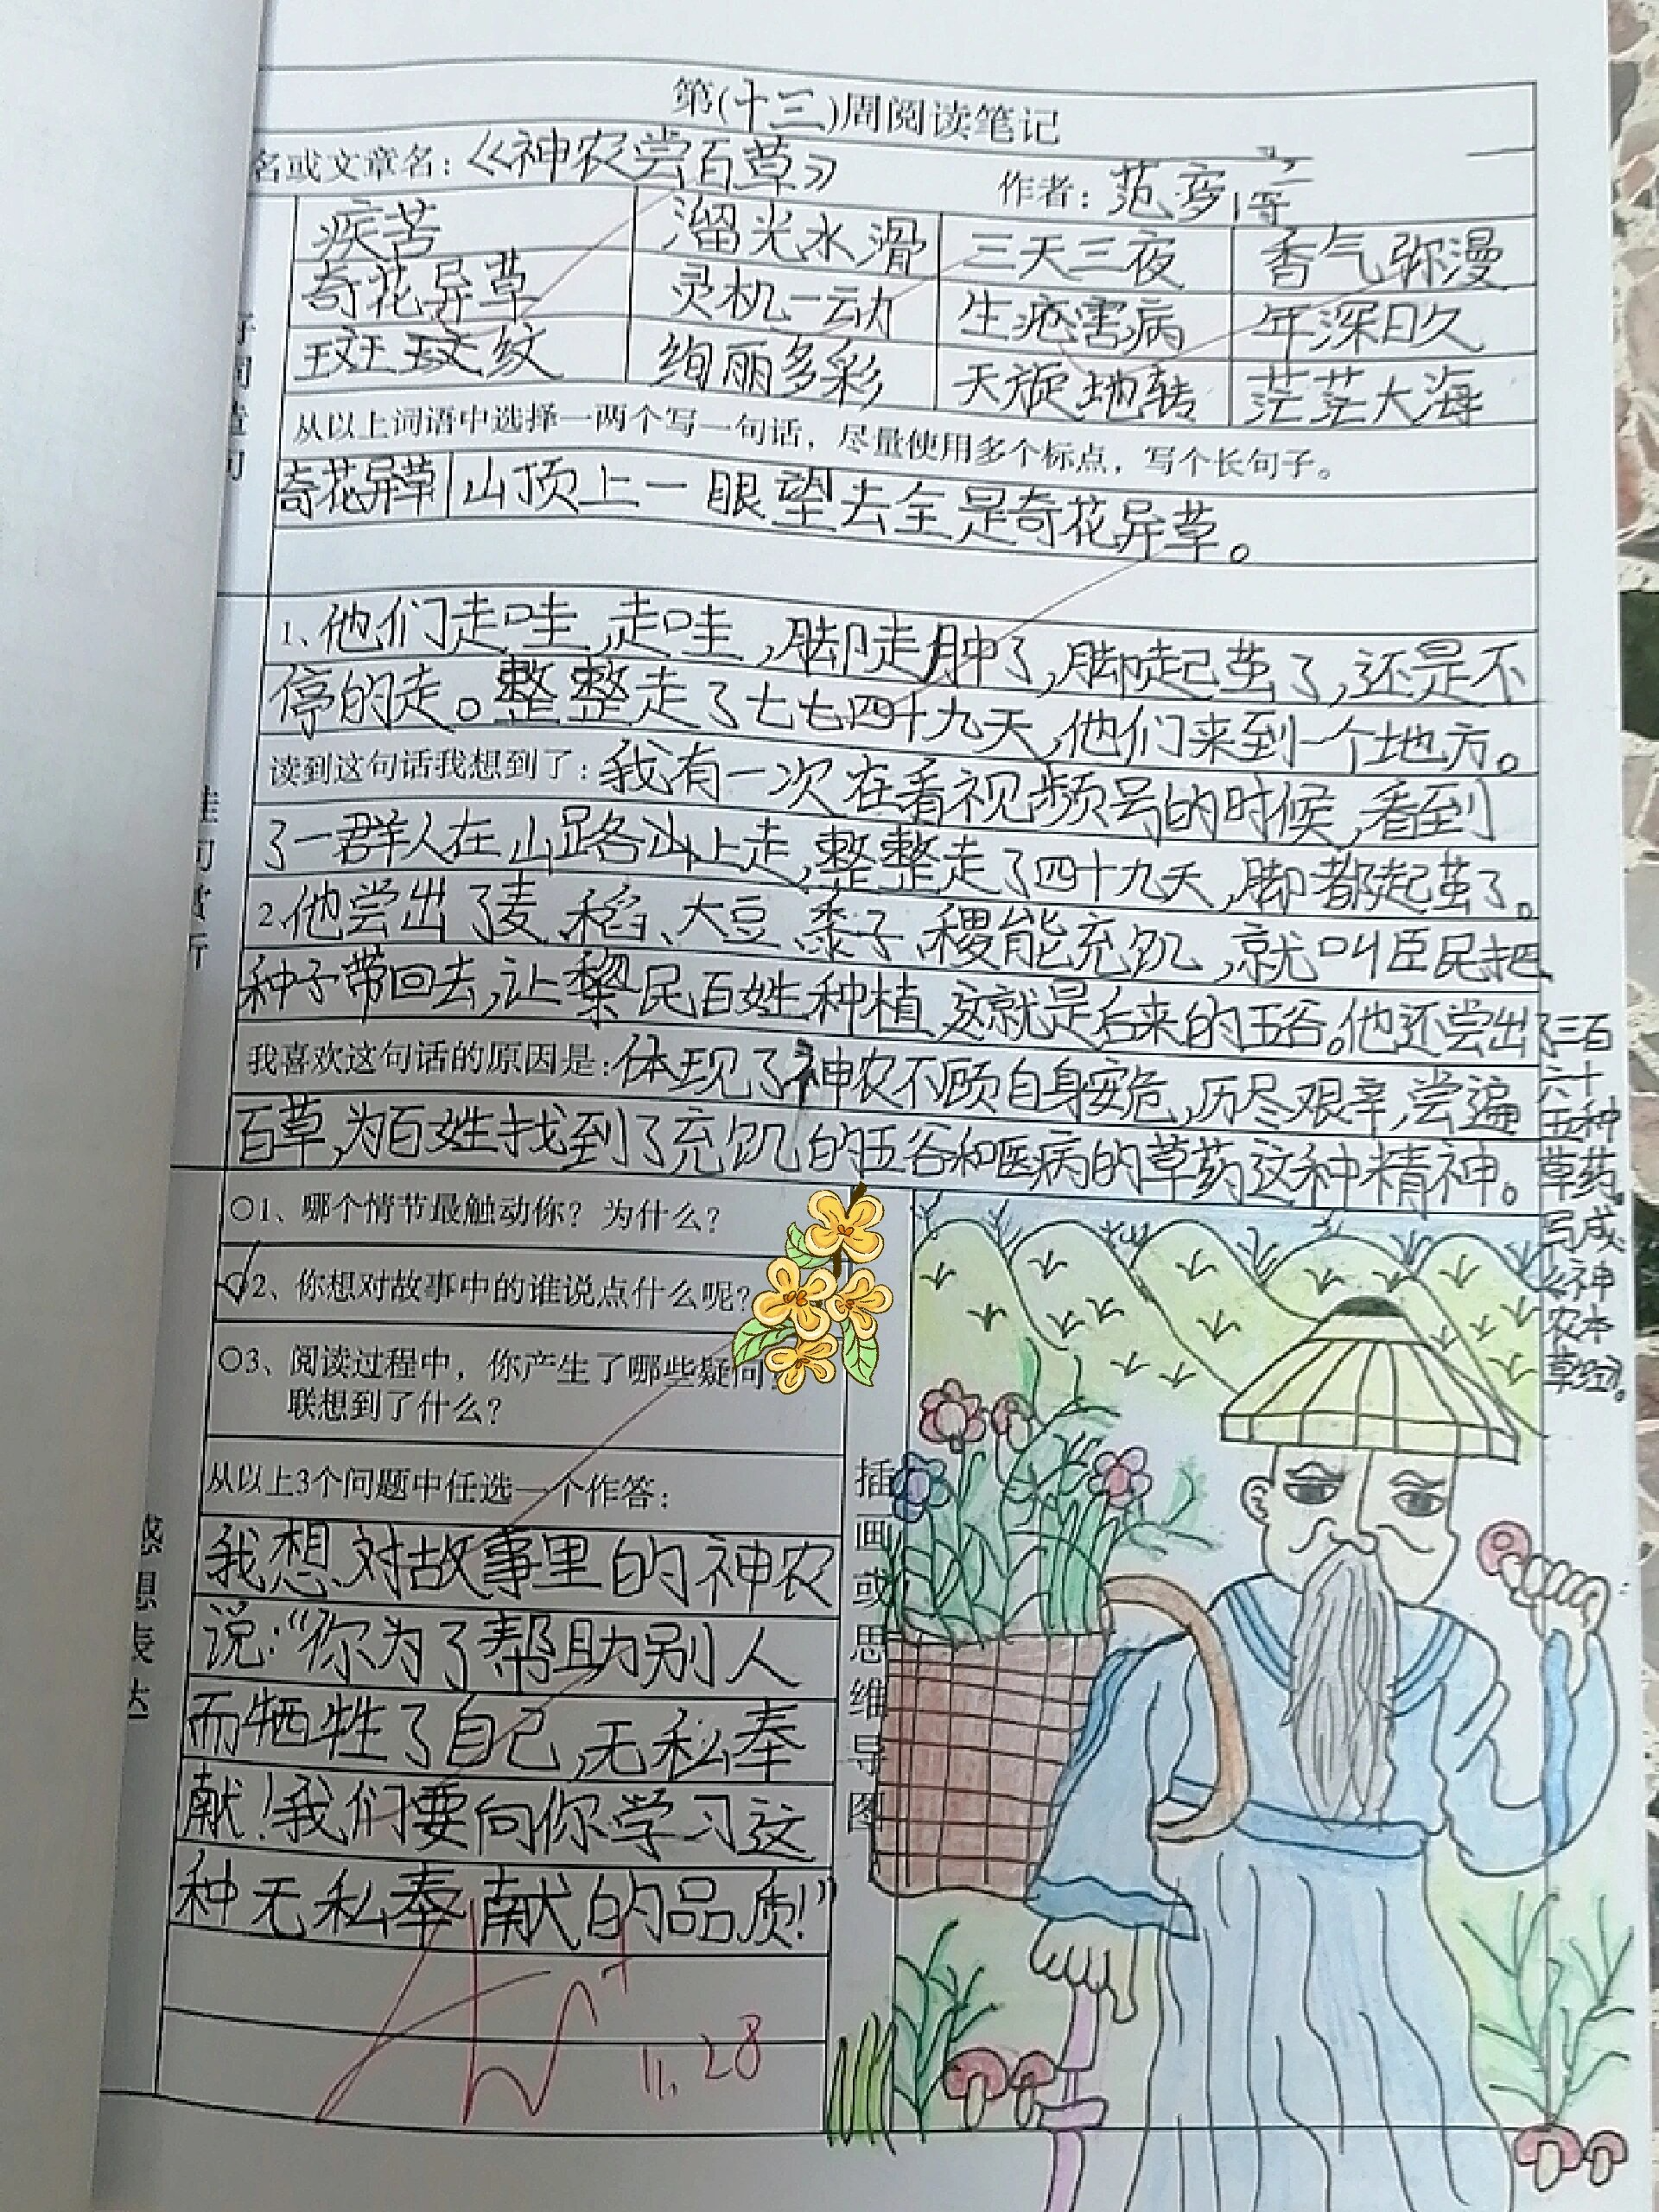 第(十三)周阅读笔记
名或文章名：《神农尝百草》 作者：范 等
疾苦 溜光水滑 三天三夜 香气弥漫
奇花异草 灵机一动 生疮害病 年深日久
斑斑纹纹 绚丽多彩 天旋地转 茫茫大海
从以上词语中选择一两个写一句话，尽量使用多个标点，写个长句子。
奇花异草 山顶上一眼望去全是奇花异草。
1、他们走哇,走哇,脚走肿了,脚走起茧了,还是不
停的走。整整走了七七四十九天,他们来到一个地方。
读到这句话我想到了：我有一次在看视频号的时候,看到
了一群人在山路山上走,整整走了四十九天,脚都起茧了。
2.他尝出了麦、稻、大豆、黍子、稷能充饥,就叫臣民把
种子带回去,让黎民百姓种植,这就是后来的五谷。他还尝出了三百
六十
五种
草药,
写成
《神
农本
草经》。
我喜欢这句话的原因是：体现了神农不顾自身安危,历尽艰辛,尝遍
百草,为百姓找到了充饥的五谷和医病的草药这种精神。
○1、哪个情节最触动你？为什么？
✓2、你想对故事中的谁说点什么呢？
○3、阅读过程中，你产生了哪些疑问
联想到了什么？
从以上3个问题中任选一个作答：
我想对故事里的神农
说:“你为了帮助别人
而牺牲了自己,无私奉
献!我们要向你学习这
种无私奉献的品质!”
感想表达
插画或思维导图
11.28